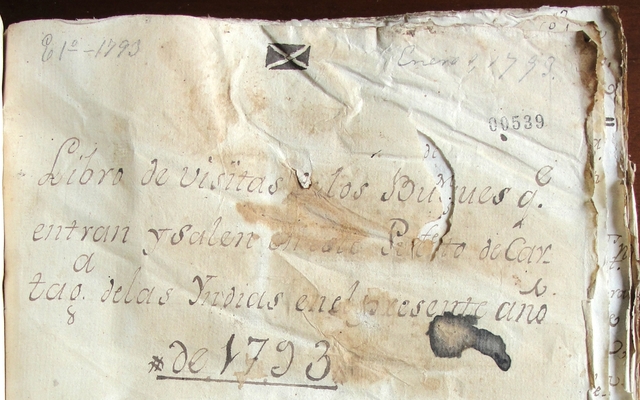 E 1º - 1793
Enero 1793
00539
Libro de visitas los Buques q.e
entran y salen en este Puerto de Car
tag.a de las Yndias en el presente año
de 1793